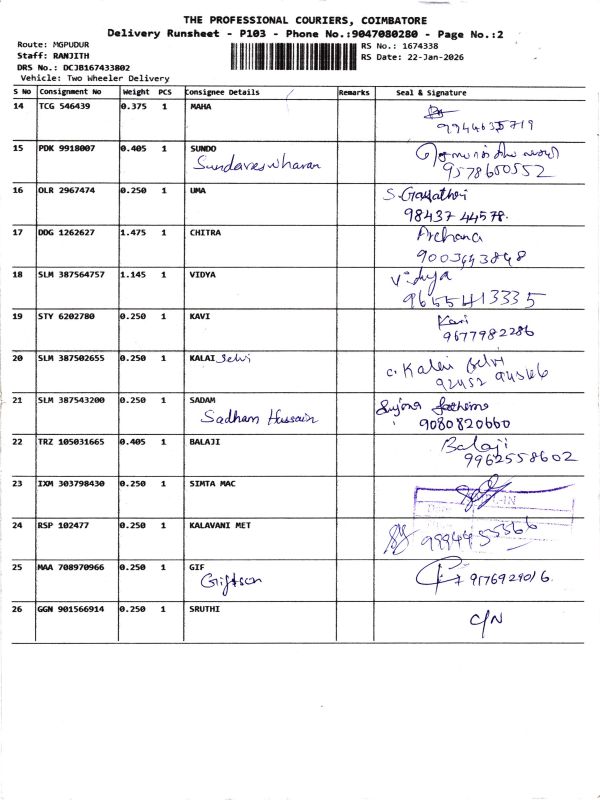 THE PROFESSIONAL COURIERS, COIMBATORE
Delivery Runsheet - P103 - Phone No.:9047080280 - Page No.:2
Route: MGPUDUR
RS No.: 1674338
Staff: RANJITH
RS Date: 22-Jan-2026
DRS No.: DCJB167433802
Vehicle: Two Wheeler Delivery
S No Consignment No Weight PCS Consignee Details Remarks Seal & Signature
14 TCG 546439 0.375 1 MAHA
15 PDK 9918007 0.405 1 SUNDO
Sundareswharan
9578600552
16 OLR 2967474 0.250 1 UMA S. Gayathri
98437 44578.
17 DDG 1262627 1.475 1 CHITRA Archana
9003443848
18 SLM 387564757 1.145 1 VIDYA Vidya
9655413335
19 STY 6202780 0.250 1 KAVI Kavi
9677982286
20 SLM 387502655 0.250 1 KALAI Selvi C. Kalai Selvi
92452 94566
21 SLM 387543200 0.250 1 SADAM
Sadham Hussain
9080820660
22 TRZ 105031665 0.405 1 BALAJI Balaji
9962558602
23 IXM 303798430 0.250 1 SIMTA MAC
24 RSP 102477 0.250 1 KALAVANI MET 9994455366
25 MAA 708970966 0.250 1 GIF
Giftson
9176929016
26 GGN 901566914 0.250 1 SRUTHI C/N